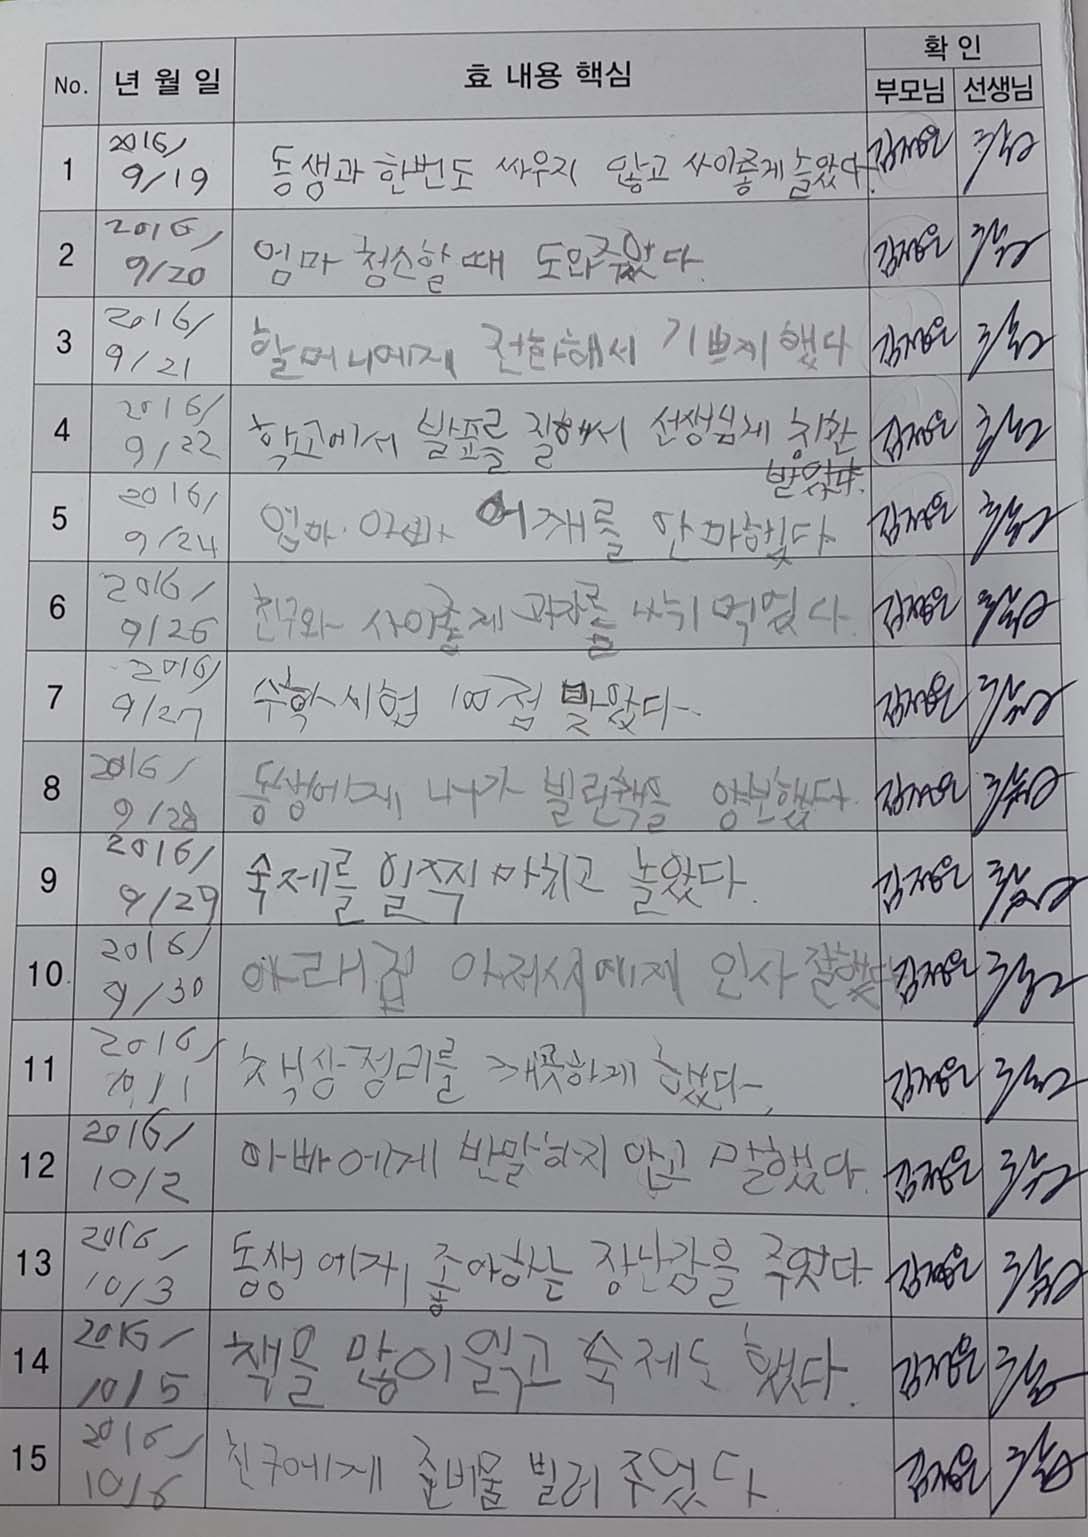 No. 년 월 일 효 내용 핵심 확 인
부모님 선생님
1 2016/ 9/19 동생과 한번도 싸우지 않고 사이좋게 놀았다.
2 2016/ 9/20 엄마 청소할때 도와주었다.
3 2016/ 9/21 할머니에게 전화해서 기쁘게 했다
4 2016/ 9/22 학교에서 발표를 잘해서 선생님께 칭찬
받았다.
5 2016/ 9/24 엄마·아빠 어깨를 안마했다
6 2016/ 9/26 친구와 사이좋게 과자를 나눠 먹었다.
7 2016/ 9/27 수학시험 100점 받았다.
8 2016/ 9/28 동생에게 내가 빌린책을 양보했다.
9 2016/ 9/29 숙제를 일찍 마치고 놀았다.
10. 2016/ 9/30 아래집 아저씨에게 인사 잘했다
11 2016/ 10/1 책상정리를 깨끗하게 했다.
12 2016/ 10/2 아빠에게 반말하지 안고 말했다.
13 2016/ 10/3 동생에게 좋아하는 장난감을 주었다.
14 2016/ 10/5 책을 많이 읽고 숙제도 했다.
15 2016/ 10/6 친구에게 준비물 빌려 주었다.